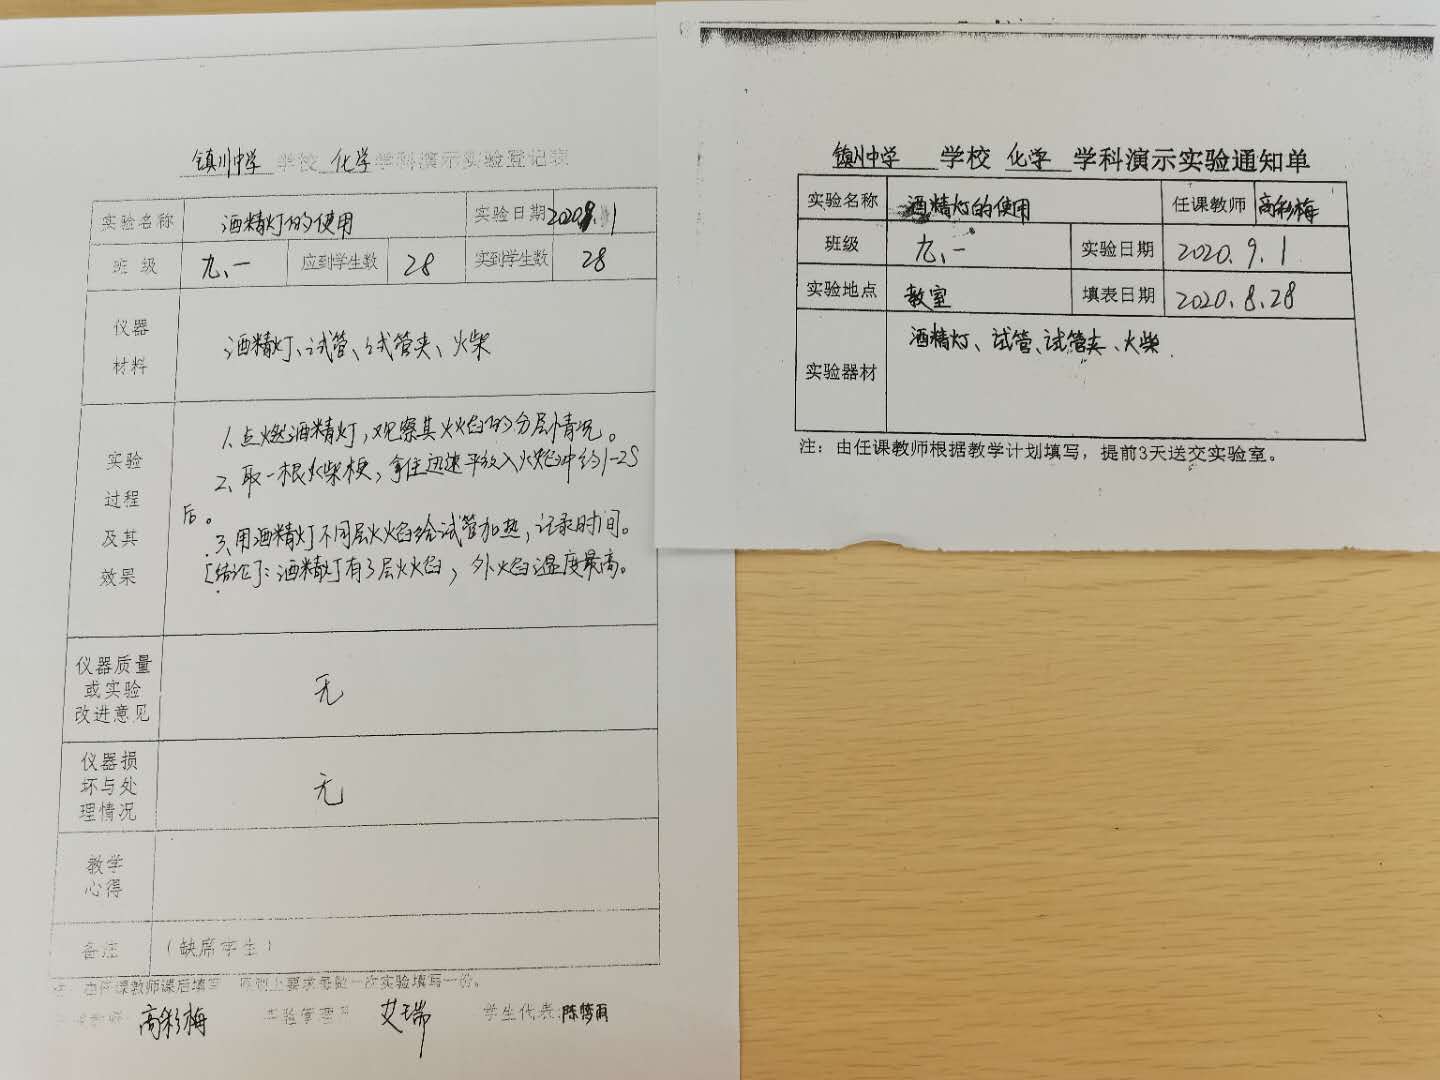 镇川中学 学校 化学 学科演示实验登记表
实验名称 酒精灯的使用 实验日期 2020.9.1
班 级 九、一 应到学生数 28 实到学生数 28
仪器
材料
酒精灯、试管、试管夹、火柴
实验
过程
及其
效果
1、点燃酒精灯，观察其火焰的分层情况。
2、取一根火柴梗，拿住迅速平放入火焰中约1-2S
后。
3、用酒精灯不同层火焰给试管加热，记录时间。
[结论]：酒精灯有3层火焰，外火焰温度最高。
仪器质量
或实验
改进意见
无
仪器损
坏与处
理情况
无
教学
心得
备注 （缺席学生）
注：由任课教师课后填写，原则上要求每做一次实验填写一份。
任课教师：高彩梅 实验管理员 艾瑞 学生代表：陈梦雨
镇川中学 学校 化学 学科演示实验通知单
实验名称 酒精灯的使用 任课教师 高彩梅
班级 九、一 实验日期 2020.9.1
实验地点 教室 填表日期 2020.8.28
实验器材 酒精灯、试管、试管夹、火柴
注：由任课教师根据教学计划填写，提前3天送交实验室。